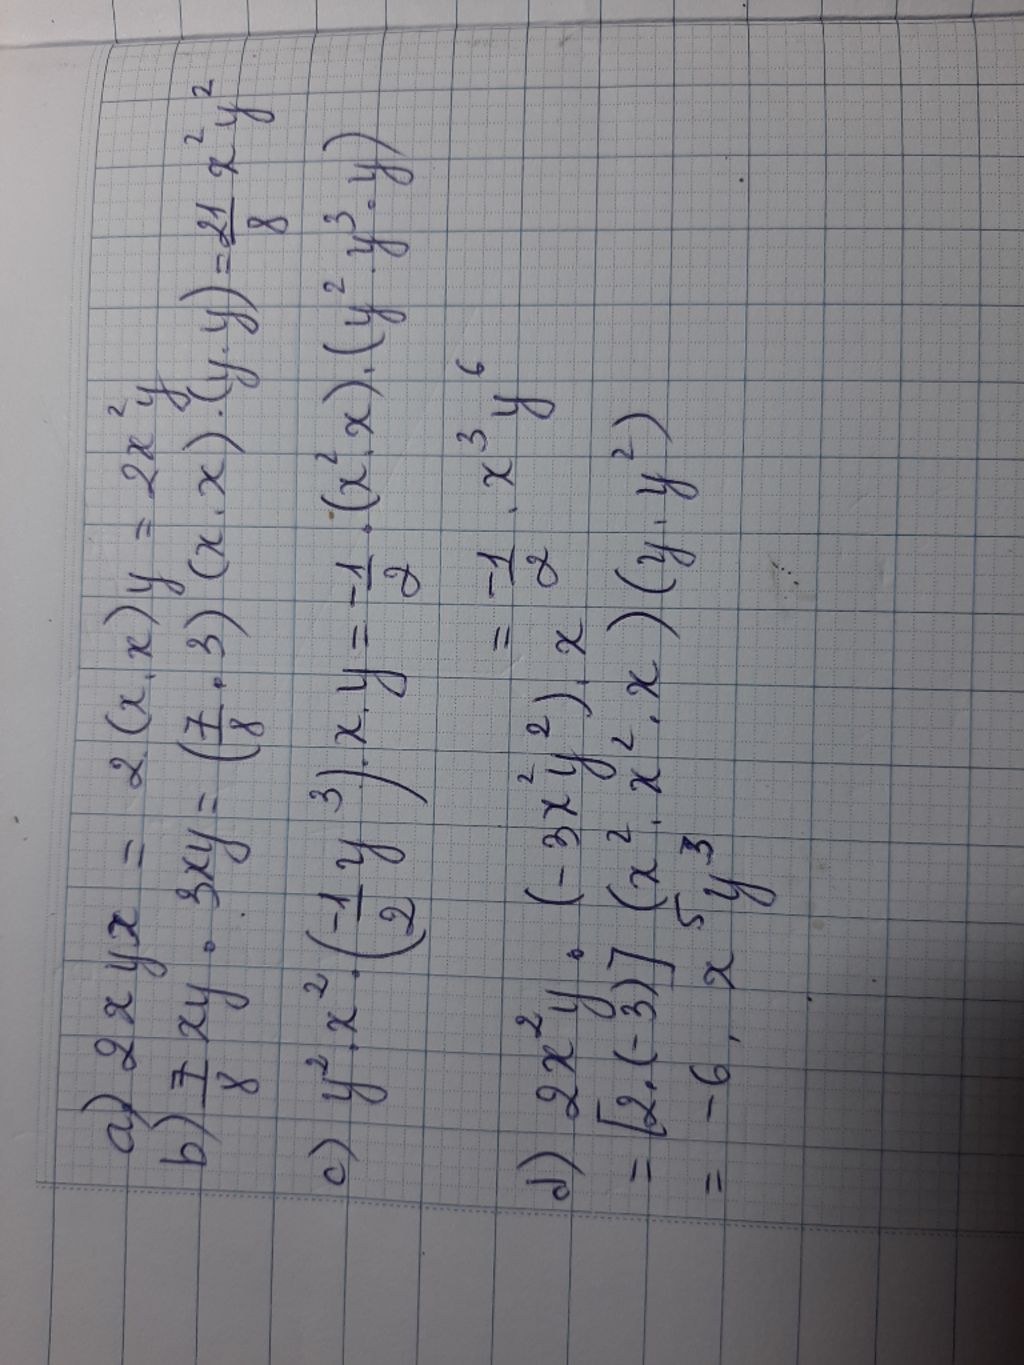 a) 2xyx = 2.(x.x)y = 2x²y
b) 7/8 xy . 3xy = (7/8 . 3) (x.x).(y.y) = 21/8 x²y²
c) y².x².(-1/2 y³).x.y = -1/2 .(x².x).(y².y³.y)
= -1/2 . x³y⁶
d) 2x²y . (-3x²y²).x
= [2.(-3)] (x².x².x)(y.y²)
= -6, x⁵y³